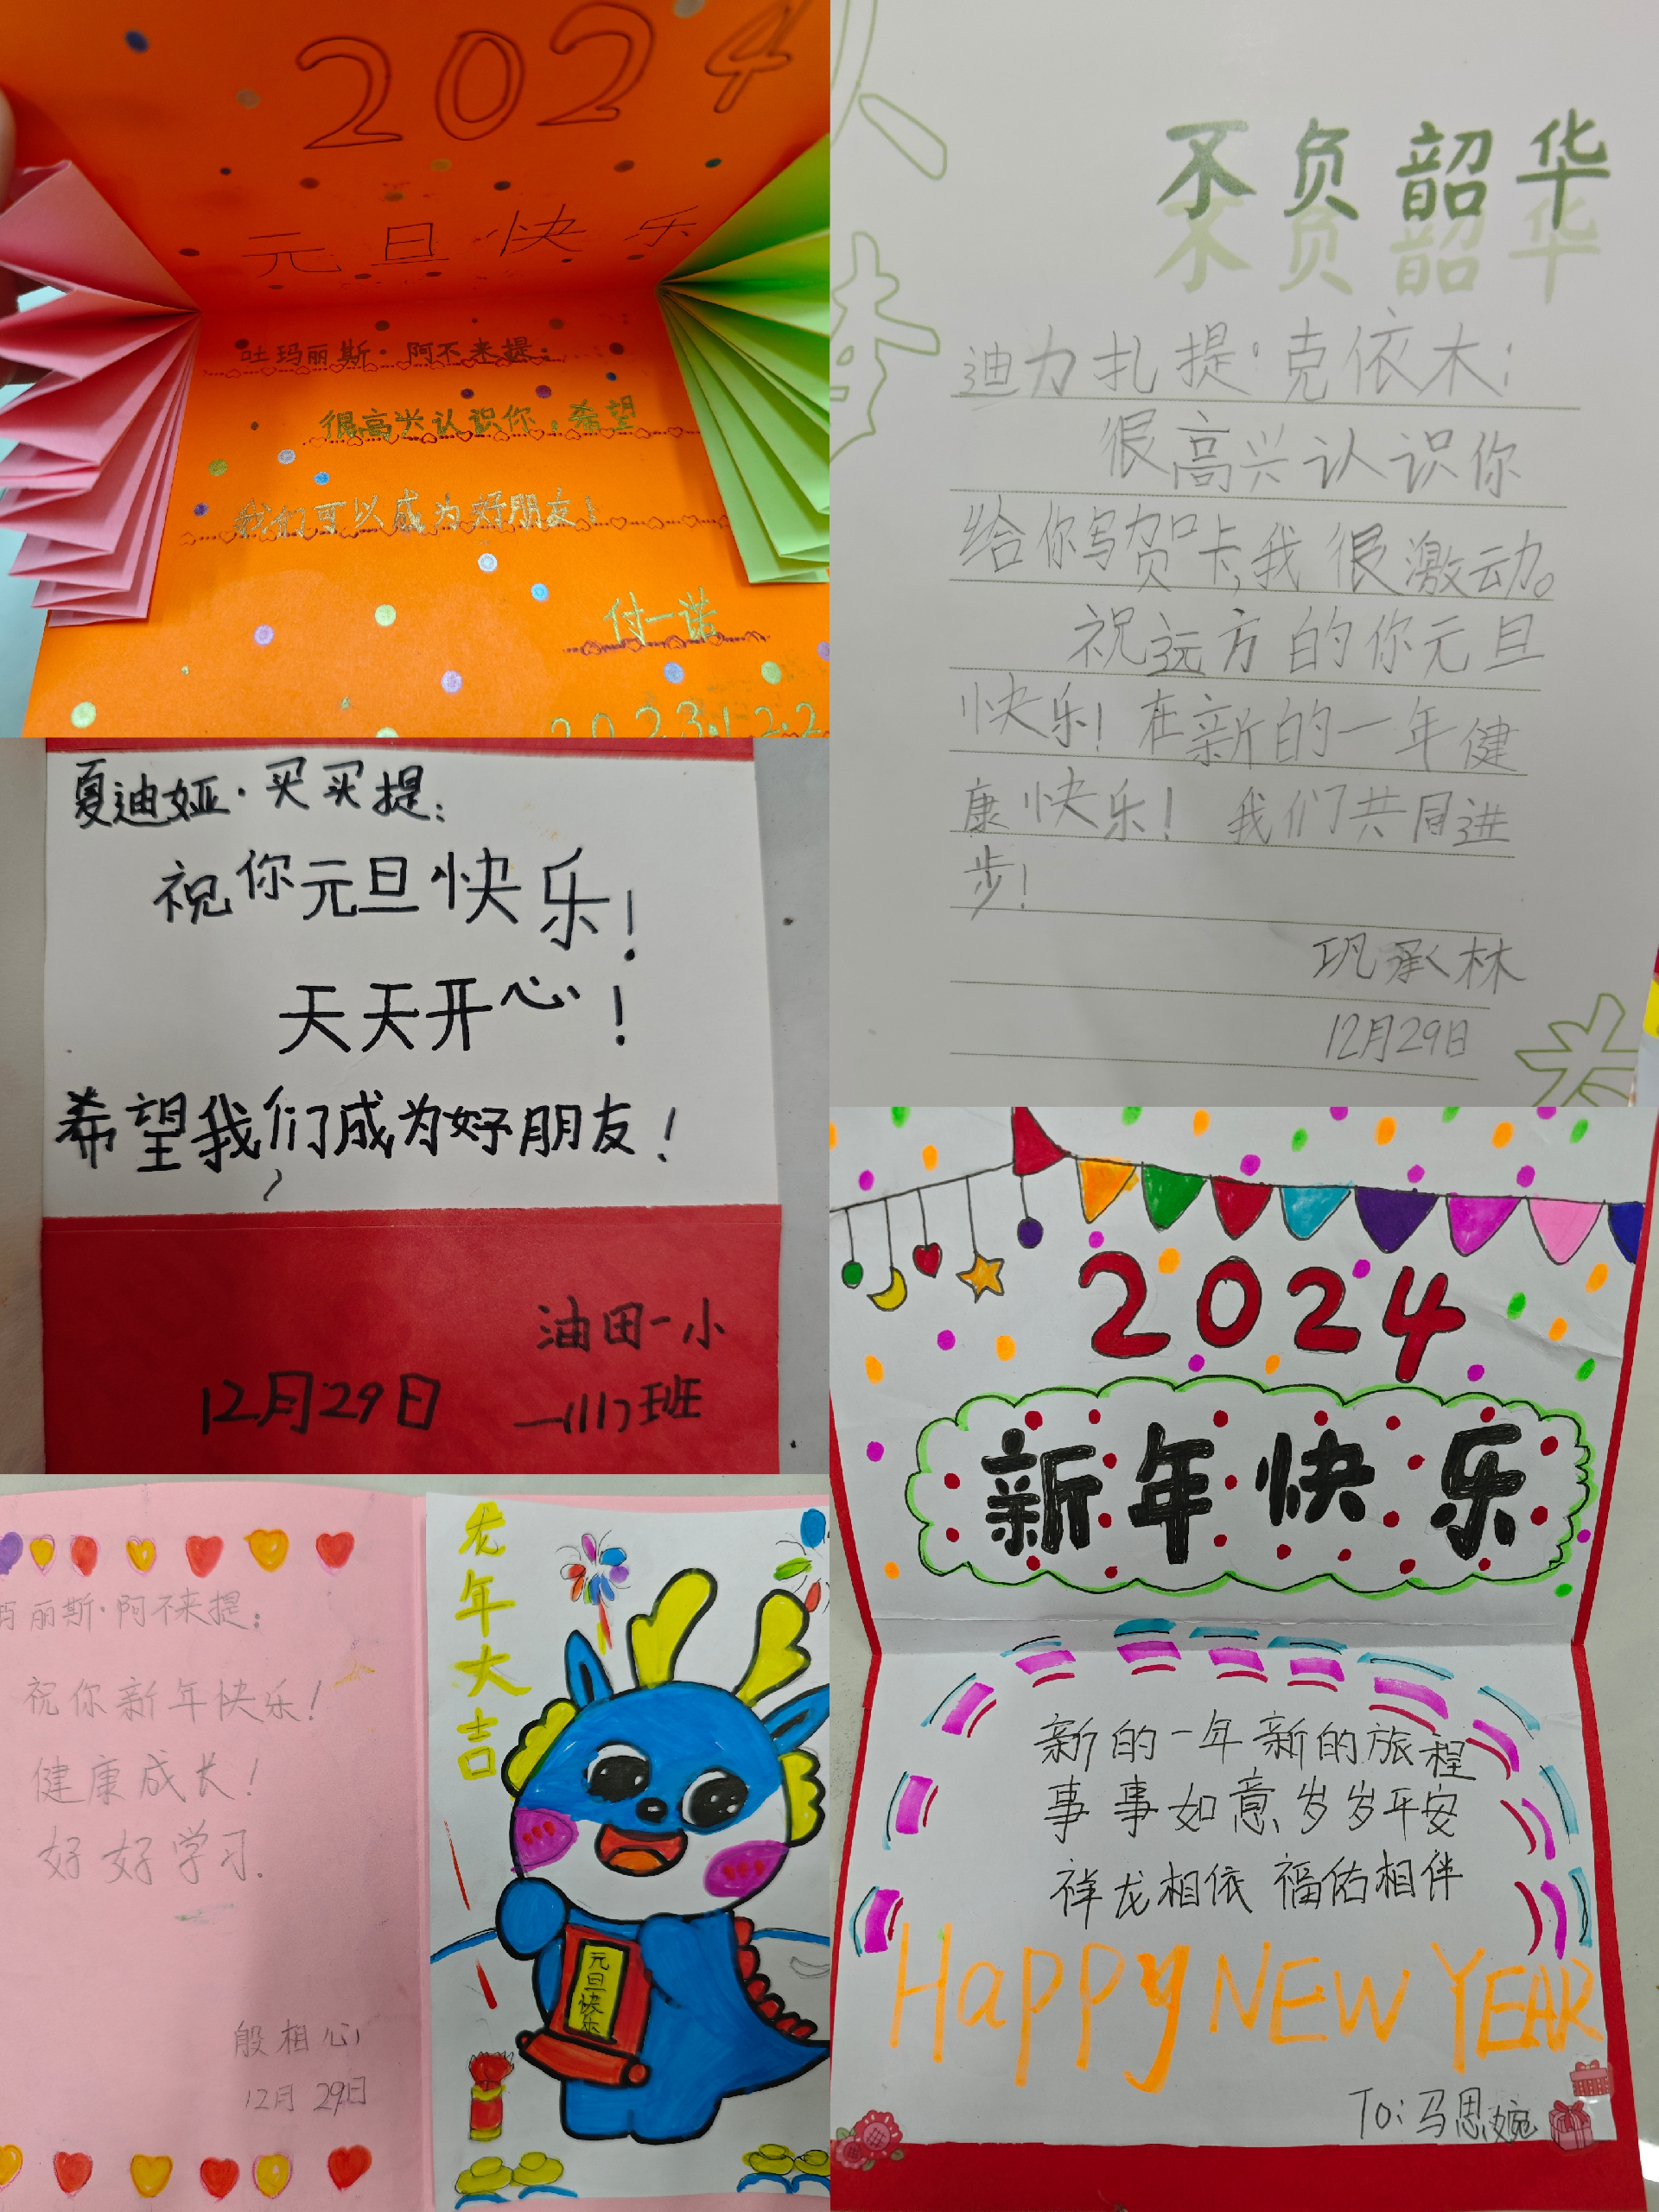 2024
元旦快乐
吐玛丽斯·阿不来提:
很高兴认识你,希望
我们可以成为好朋友!
付一诺
2023.12.2
不负韶华
不负韶华
迪力扎提·克依木:
很高兴认识你
给你写贺卡,我很激动。
祝远方的你元旦
快乐!在新的一年健
康快乐!我们共同进
步!
巩承林
12月29日
夏迪娅·买买提:
祝你元旦快乐!
天天开心!
希望我们成为好朋友!
油田一小
12月29日
一(11)班
2024
新年快乐
新的一年新的旅程
事事如意岁岁平安
祥龙相依 福佑相伴
HaPPy NEW YEAR
To:马思婉
玛丽斯·阿不来提:
祝你新年快乐!
健康成长!
好好学习.
殷相心
12月29日
龙年大吉
元旦快乐